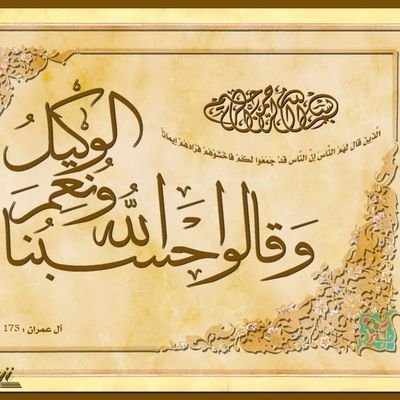 بسم الله الرحمن الرحيم
الَّذِينَ قَالَ لَهُمُ النَّاسُ إِنَّ النَّاسَ قَدْ جَمَعُوا لَكُمْ فَاخْشَوْهُمْ فَزَادَهُمْ إِيمَانًا
وَقَالُوا حَسْبُنَا اللّهُ
وَنِعْمَ
الْوَكِيلُ
آل عمران : 173